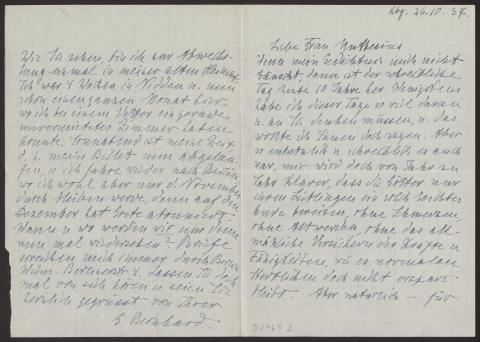 Kbg. 26.10.37.
Liebe Frau Muthesius
Wenn mein Gedächtnis mich nicht
täuscht, dann ist der schreckliche
Tag heute 10 Jahre her. Wenigstens
habe ich dieser Tage so viel daran
u. an Sie denken müssen, u. das
wollte ich Ihnen doch sagen. Aber
so entsetzlich u. schrecklich es auch
war, mir wird doch von Jahr zu
Jahr klarer, dass die Götter nur
ihren Lieblingen ein solch leichtes
Ende bereiten, ohne Schmerzen,
ohne Altwerden, ohne das all-
mähliche Versickern der Kräfte u.
Fähigkeiten, wie es normalen
Sterblichen doch nicht erspart
bleibt. Aber natürlich – für
Wie Sie sehen, bin ich zur Abwechs-
lung einmal in meiner alten Heimat.
Ich war 4 Wochen in Nidden u. nun
schon einen ganzen Monat hier,
wo ich bei einem Vetter ein gerade
unvermietetes Zimmer haben
konnte. Sonnabend ist meine Zeit
d. h. mein Billet nun abgelau-
fen, u. ich fahre wieder nach Berlin
wo ich wohl aber nur d. November
durch bleiben werde, denn auf den
Dezember hat Grete abonniert.
Wann u. wo werden wir uns denn
nun mal wiedersehen? Briefe
erreichen mich immer durch Berlin
Wilm. Berlinerstr. 4. Lassen Sie doch
mal von sich hören u. seien Sie
herzlich gegrüsst von Ihrer
E. Bernhard.